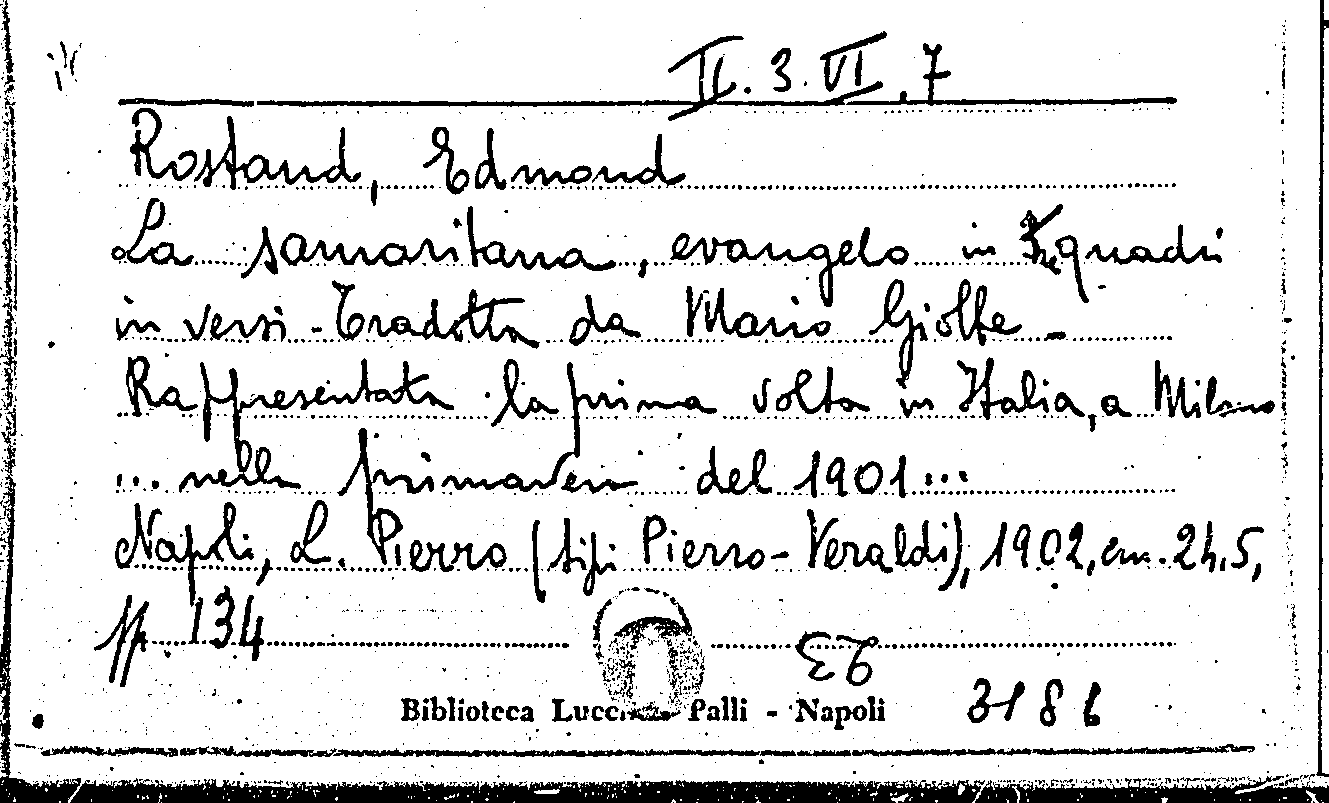 II. 3. VI. 7
Rostand, Edmond
La samaritana, evangelo in quadri
in versi - Tradotta da Mario Giobbe -
Rappresentata la prima volta in Italia, a Milano
... nella primavera del 1901 ...
Napoli, L. Pierro (tip. Pierro - Veraldi), 1902, cm. 24,5,
pp. 134
Biblioteca Palli - Napoli 3186